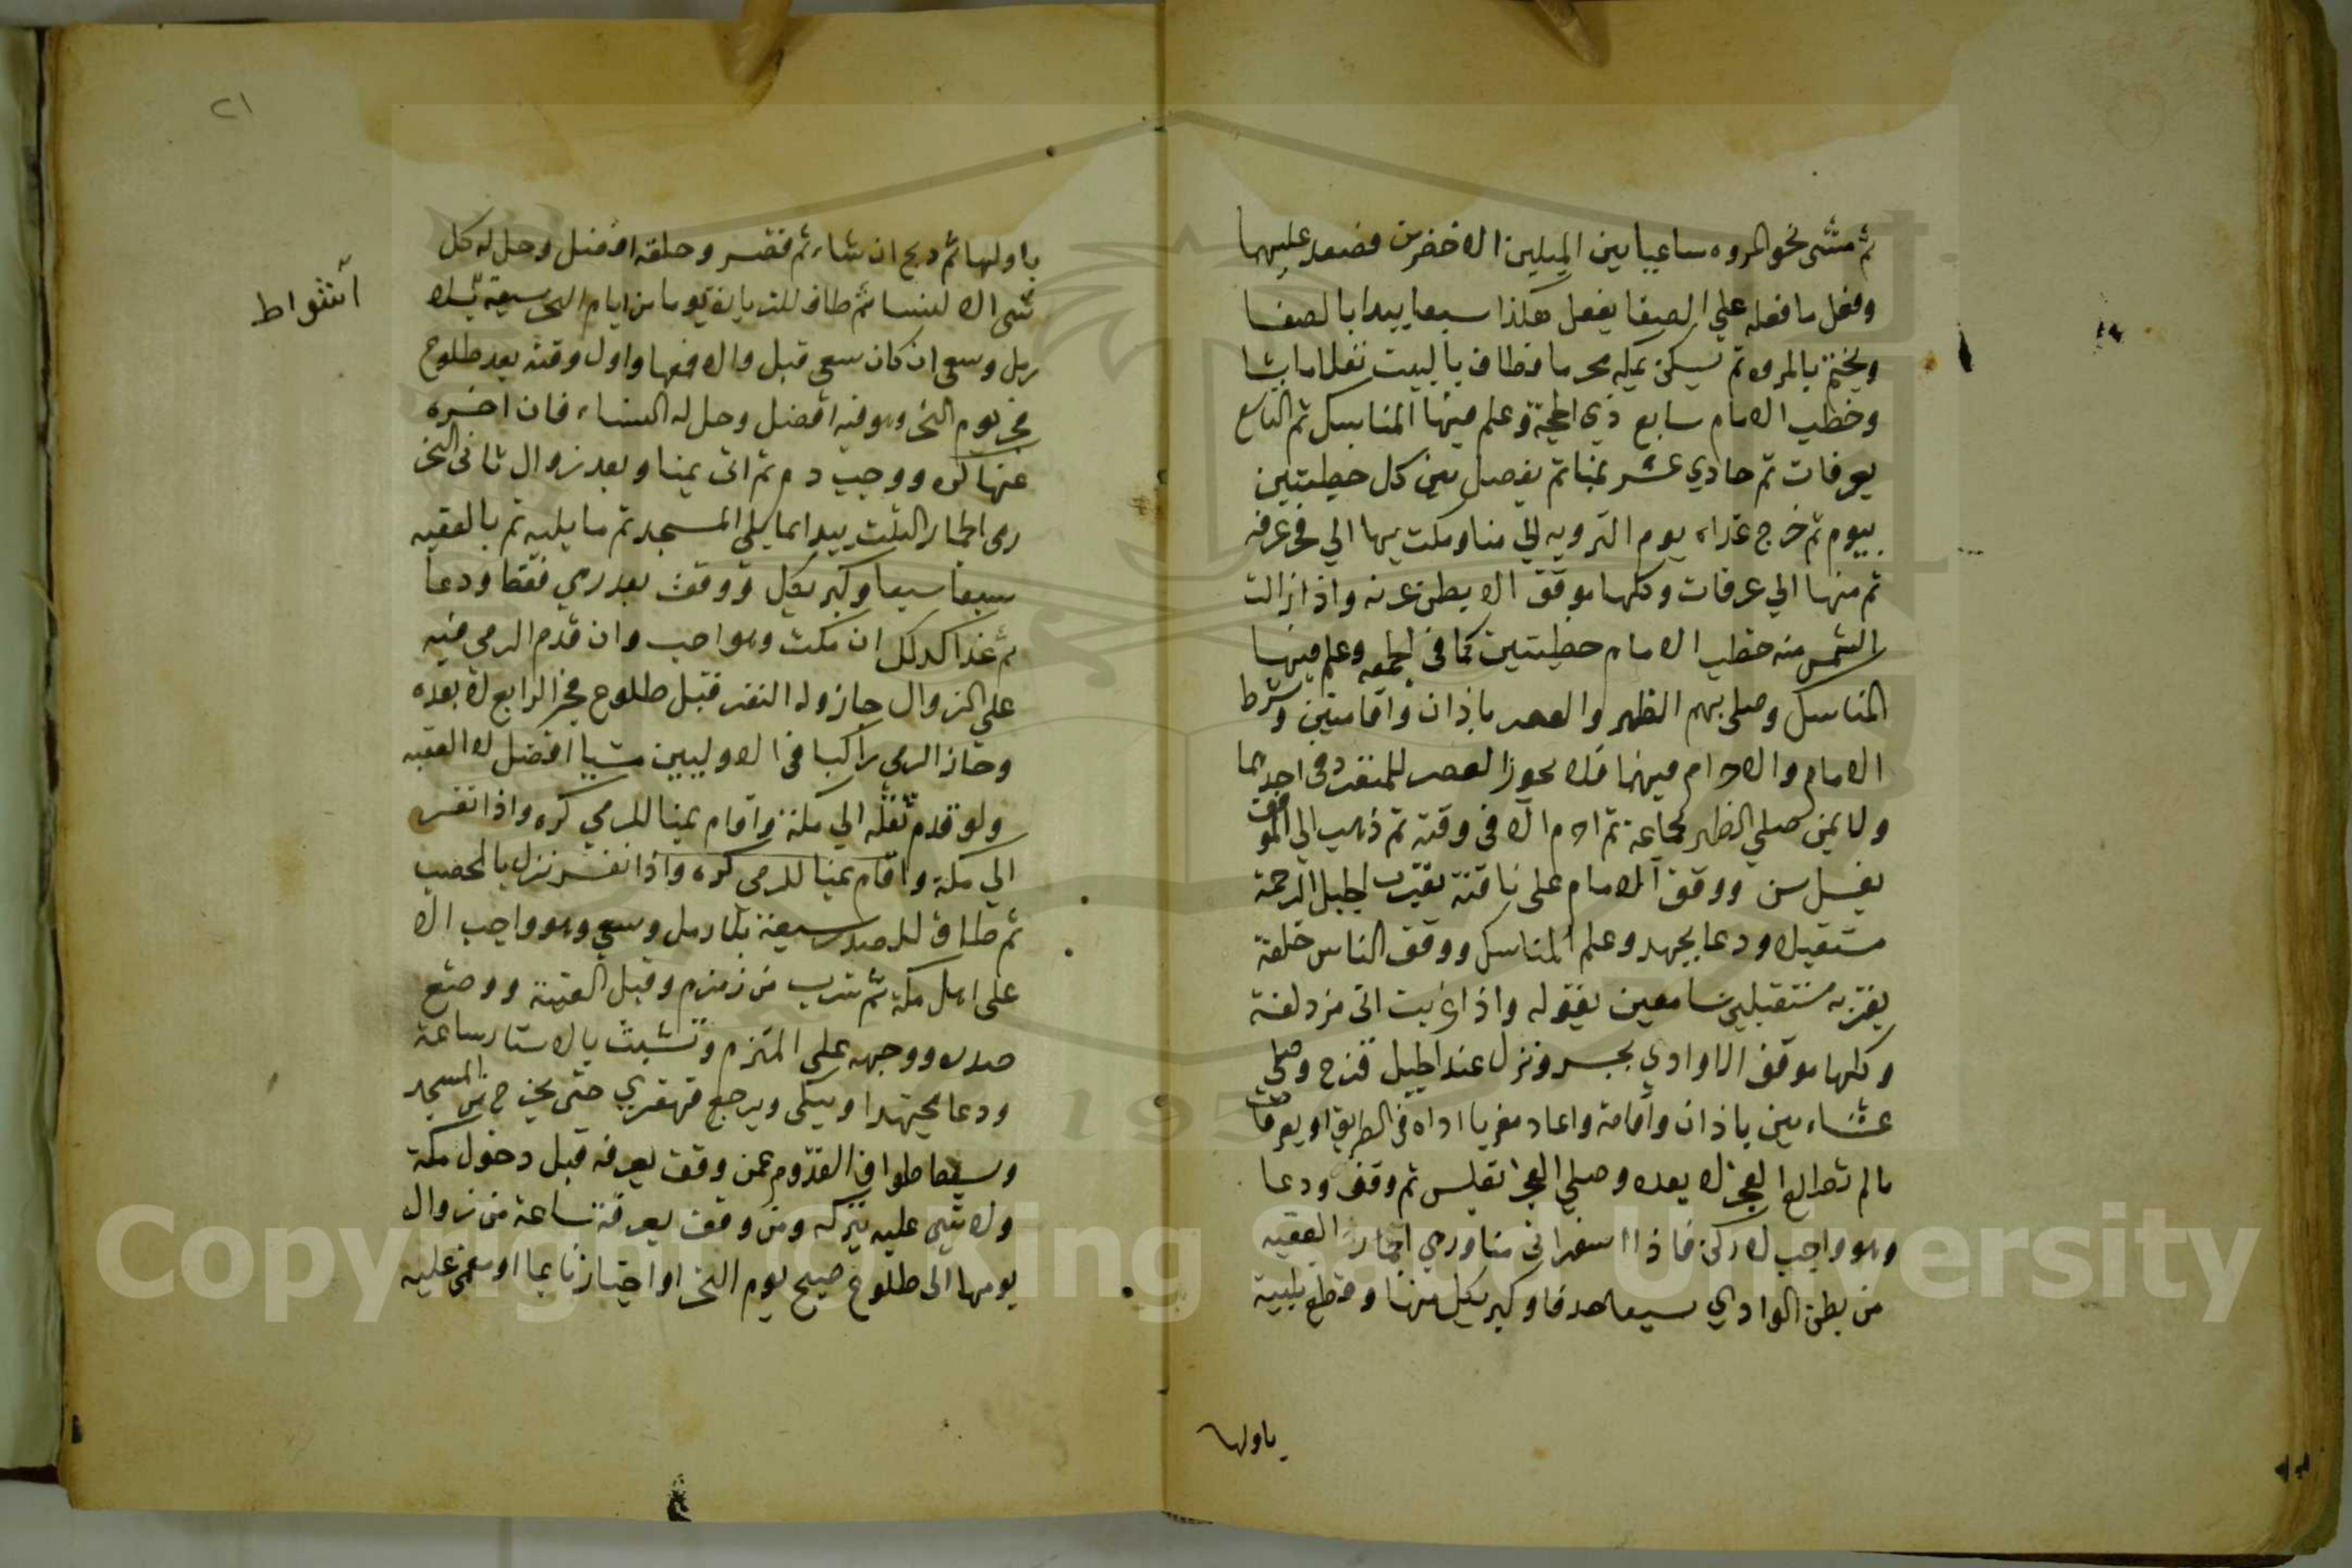 ثم مشى نحو المروه ساعيا بين الميلين الاخضرين فصعد عليها
وفعل ما فعله على الصفا يفعل هكذا سبعا يبدا بالصفا
ويختم بالمروه ثم يسكن بمكه محرما فطاف بالبيت نفلا ما شا
وخطب الامام سابع ذي الحجة وعلم فيها المناسك ثم التاسع
بعرفات ثم حادي عشر بمنا ثم يفصل بين كل خطبتين
بيوم ثم خرج غداه يوم الترويه الي منا ومكث بها الي فجر عرفه
ثم منها الي عرفات وكلها موقف الا بطن عرنه واذا زالت
الشمس منه خطب الامام خطبتين كما في الجمعه وعلم فيها
المناسك وصلى بهم الظهر والعصر باذان واقامتين وشرط
الامام والاحرام فيهما فلا يجوز العصر للمنفرد في احدهما
ولا لمن صلي الظهر بجماعة ثم احرم الا في وقته ثم ذهب الي الموقف
بغسل سن ووقف الامام على ناقته بقرب جبل الرحمة
مستقبلا ودعا بجهد وعلم المناسك ووقف الناس خلفه
بقربه مستقبلين سامعين بقوله واذا غربت اتى مزدلفة
وكلها موقف الا وادي محسر ونزل عند جبل قزح وصلى
عشاءين باذان واقامة واعاد مغربا اداه في الطريق او بعرفات
ما لم تطلع الفجر لا بعده وصلي الفجر بغلس ثم وقف ودعا
وهو واجب لا ركن فاذا اسفر اتى منا ورمي جمار العقبه
من بطن الوادي سبعا خذفا وكبر بكل منها وقطع تلبية
باولها
٢١
باولها ثم ذبح ان شاء ثم قصر وحلقه افضل وحل له كل
شى الا النسا ثم طاف للزيارة يوما من ايام النحر سبعة بلا
اشواط
رمل وسعى ان كان سعى قبل والا فعها واول وقته بعد طلوع
فجر يوم النحر وهو فيه افضل وحل له النساء فان اخره
عنها كره ووجب دم ثم اتى بمنا وبعد زوال ثاني النحر
رمى الجمار الثلث يبدا بما يلي المسجد ثم ما يليه ثم بالعقبه
سبعا سبعا وكبر بكل ووقف بعد رمي فقط ودعا
ثم غدا كذلك ان مكث وهو احب وان قدم الرمي فيه
على الزوال جاز وله النفر قبل طلوع فجر الرابع لا بعده
وجاز الرمي راكبا في الاوليين مشيا افضل لا العقبه
ولو قدم ثقله الي مكة واقام بمنا للرمي كره واذا نفر
الي مكة واقام بمنا للرمى كره واذا نفر نزل بالمحصب
ثم طاف للصدر سبعة بلا رمل وسعي وهو واجب الا
على اهل مكة ثم شرب من زمزم وقبل العتبة ووضع
صدره ووجهه على الملتزم وتشبث بالاستار ساعة
ودعا مجتهدا ويبكى ويرجع قهقري حتى يخرج من المسجد
وسقط طواف القدوم عمن وقف بعرفه قبل دخول مكة
ولا شي عليه بتركه ومن وقف بعرفة ساعة من زوال
يومها الى طلوع صبح يوم النحر او اجتاز نايما او مغمى عليه
Copyright © King Saud University